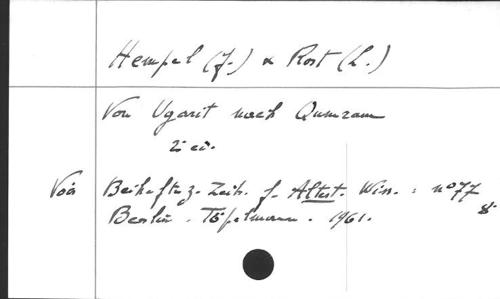 Hempel (J.) & Rost (L.)
Von Ugarit nach Qumran
2è éd.
Voir Beihefte z. Zeits. f. Altest. Wiss. : n° 77
8°
Berlin. Töpelmann. 1961.